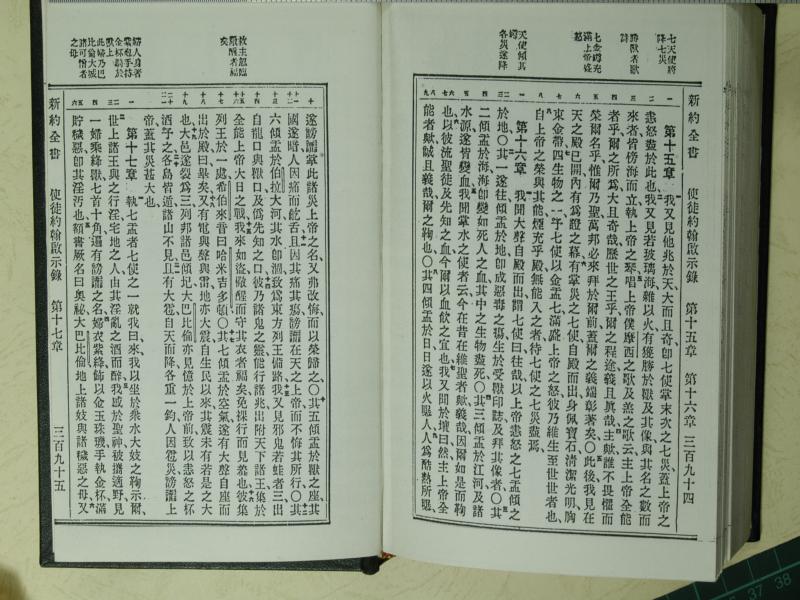 新約全書 使徒約翰啟示錄 第十五章 第十六章 三百九十四
七天使將
降七災
勝獸者獻
詩
天使傾其
各災遂降
第十五章 我又見他兆於天大而且奇卽七使掌末次之七災蓋上帝之
恚怒盡於此也我又見若玻璃海雜以火有獲勝於獸及其像與其名之數而
來者皆傍海而立執上帝之琴唱上帝僕摩西之歌及羔之歌云主上帝全能
者乎爾之所為大且奇哉歷世之王乎爾之程途義且眞哉主歟誰不畏懼而
榮爾名乎惟爾乃聖萬邦必來拜於爾前蓋爾之義端彰著矣〇此後我見在
天之殿已開內有為證之幕有掌災之七使自殿而出身佩寶石清潔光明胸
束金帶四生物之一予七使以金盂七滿盛上帝之怒彼乃維生至世世者也
自上帝之榮與其能煙充乎殿無能入之者待七使之七災盡焉
第十六章 我聞大聲自殿而出謂七使曰往哉以上帝恚怒之七盂傾之
於地〇其一遂往傾盂於地卽成惡毒之瘍生於受獸印誌及拜其像者〇其
二傾盂於海海卽變如死人之血其中之生物盡死〇其三傾盂於江河及諸
水源遂皆變血我聞掌水之使者云今在昔在維聖者歟義哉因爾如是而鞫
也以彼流聖徒及先知之血今爾以血飲之宜也我又聞於壇曰然主上帝全
能者歟誠且義哉爾之鞫也〇其四傾盂於日日遂以火暍人人為酷熱所暍
遂謗讟掌此諸災上帝之名又弗改悔而以榮歸之〇其五傾盂於獸之座其
國遂暗人因痛而齕舌且因其痛其瘍謗讟在天之上帝而不悔其所行〇其
六傾盂於伯拉大河其水卽涸致為東方列王備路我又見邪鬼若蛙者三出
自龍口與獸口及偽先知之口彼乃諸鬼之靈能行諸兆出附天下諸王集於
全能上帝大日之戰我來如盜儆醒而守其衣者福矣免裸行而見羞也彼集
列王於一處希伯來音曰哈米吉多頓〇其七傾盂於空氣遂有大聲自座而
出於殿曰畢矣又有電與聲與雷地亦大震自生民以來其震未有若是之大
也大邑遂裂為三列邦諸邑傾圮大巴比倫亦見憶於上帝前致以恚怒之杯
酒予之各島皆遁諸山不見且有大雹自天而降各重一鈞人因雹災謗讟上
帝蓋其災甚大也
第十七章 執七盂者七使之一就我曰來我以坐於衆水大妓之鞫示爾
世上諸王與之行淫宅地之人由其淫亂之酒而醉我感於聖神被攜適野見
一婦乘絳獸七首十角遍有謗讟之名婦衣紫絳飾以金玉珠璣手執金杯滿
貯穢惡卽其淫汚也額書厥名曰奧祕大巴比倫地上諸妓與諸穢惡之母又
救主忽臨
儆醒者福
矣
婦人身著
紫袍手持
金杯騎於
獸上
此婦乃巴
比倫大城
諸可憎者
之母
新約全書 使徒約翰啟示錄 第十七章 三百九十五
37 38